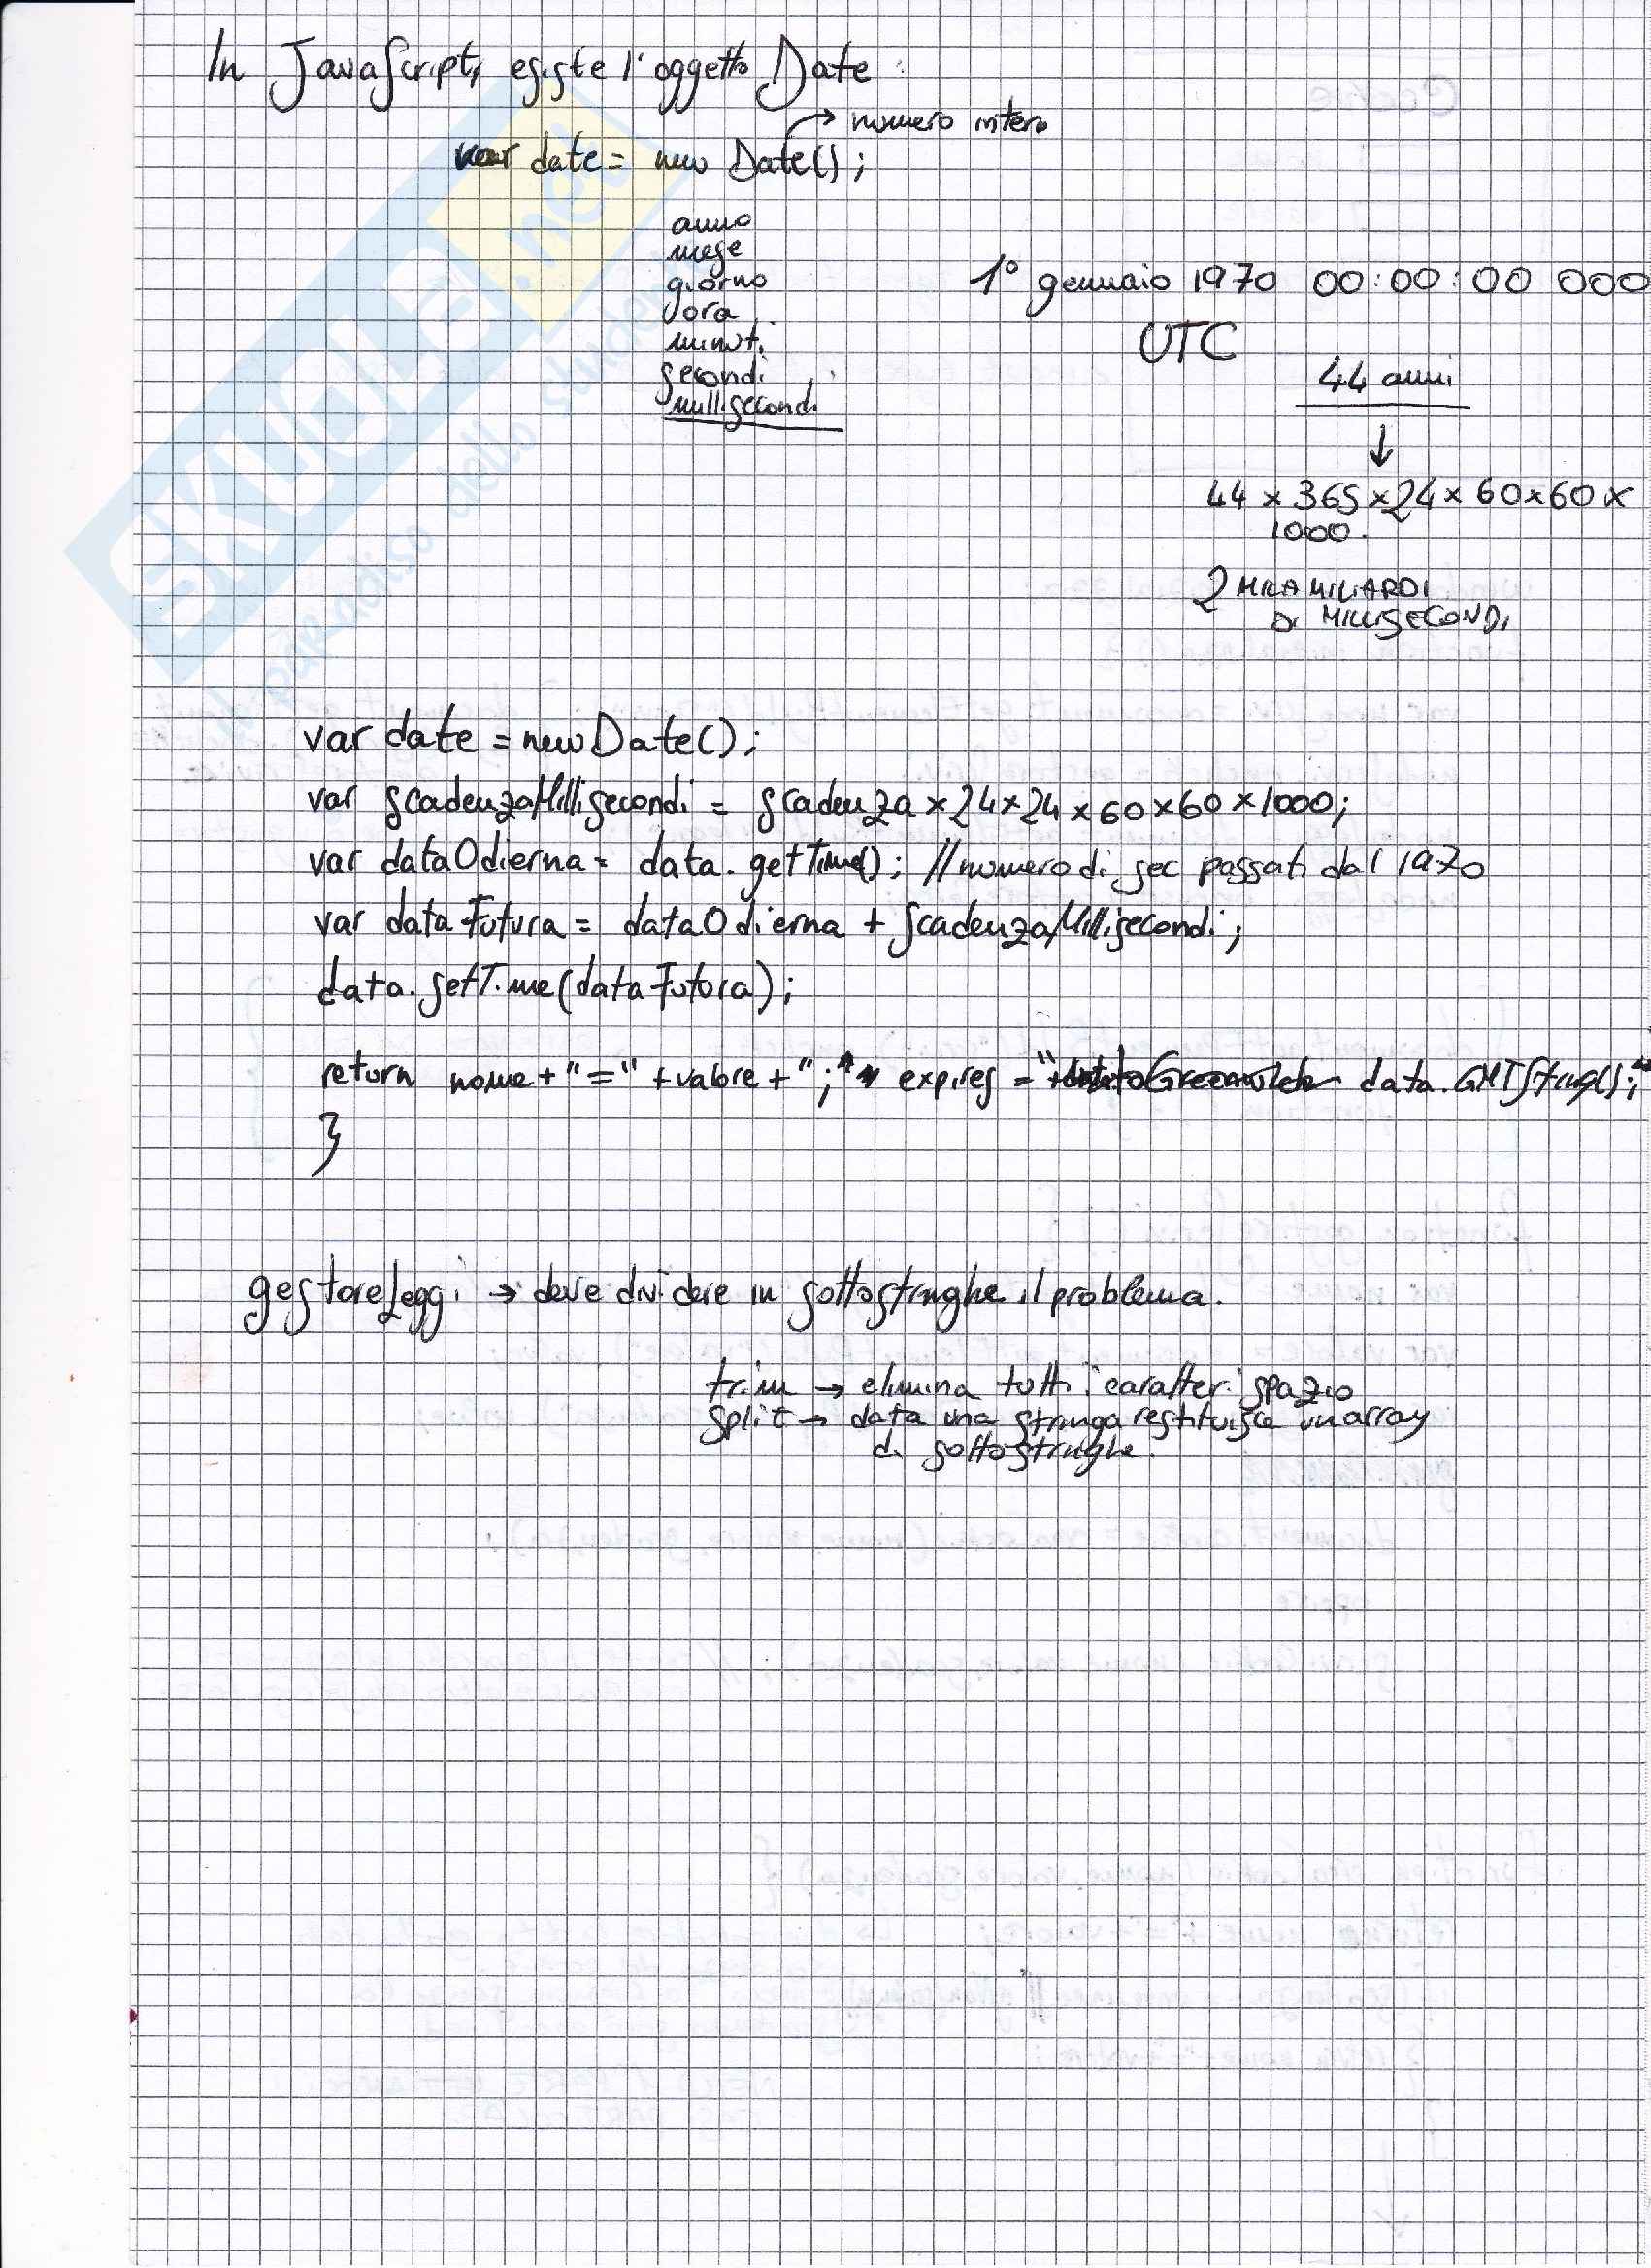 In JavaScript, esiste l'oggetto Date
numero intero
var date = new Date();
anno
mese
giorno
ora
minuti
secondi
millisecondi
1° gennaio 1970 00:00:00 000
UTC
44 anni
↓
44 x 365 x 24 x 60 x 60 x
1000.
2 MILA MILIARDI
DI MILLISECONDI
var date = new Date();
var scadenzaMillisecondi = scadenza x 24 x 24 x 60 x 60 x 1000;
var dataOdierna = data.getTime(); // numero di sec passati dal 1970
var dataFutura = dataOdierna + scadenzaMillisecondi;
data.setTime(dataFutura);
return nome + "=" + valore + ";" expires = " data.GMTString();"
}
gestoreLeggi → deve dividere in sottostringhe il problema.
trim → elimina tutti i caratteri spazio
split → data una stringa restituisce un array
di sottostringhe.
SKUOLA.net
il paradiso dello studente